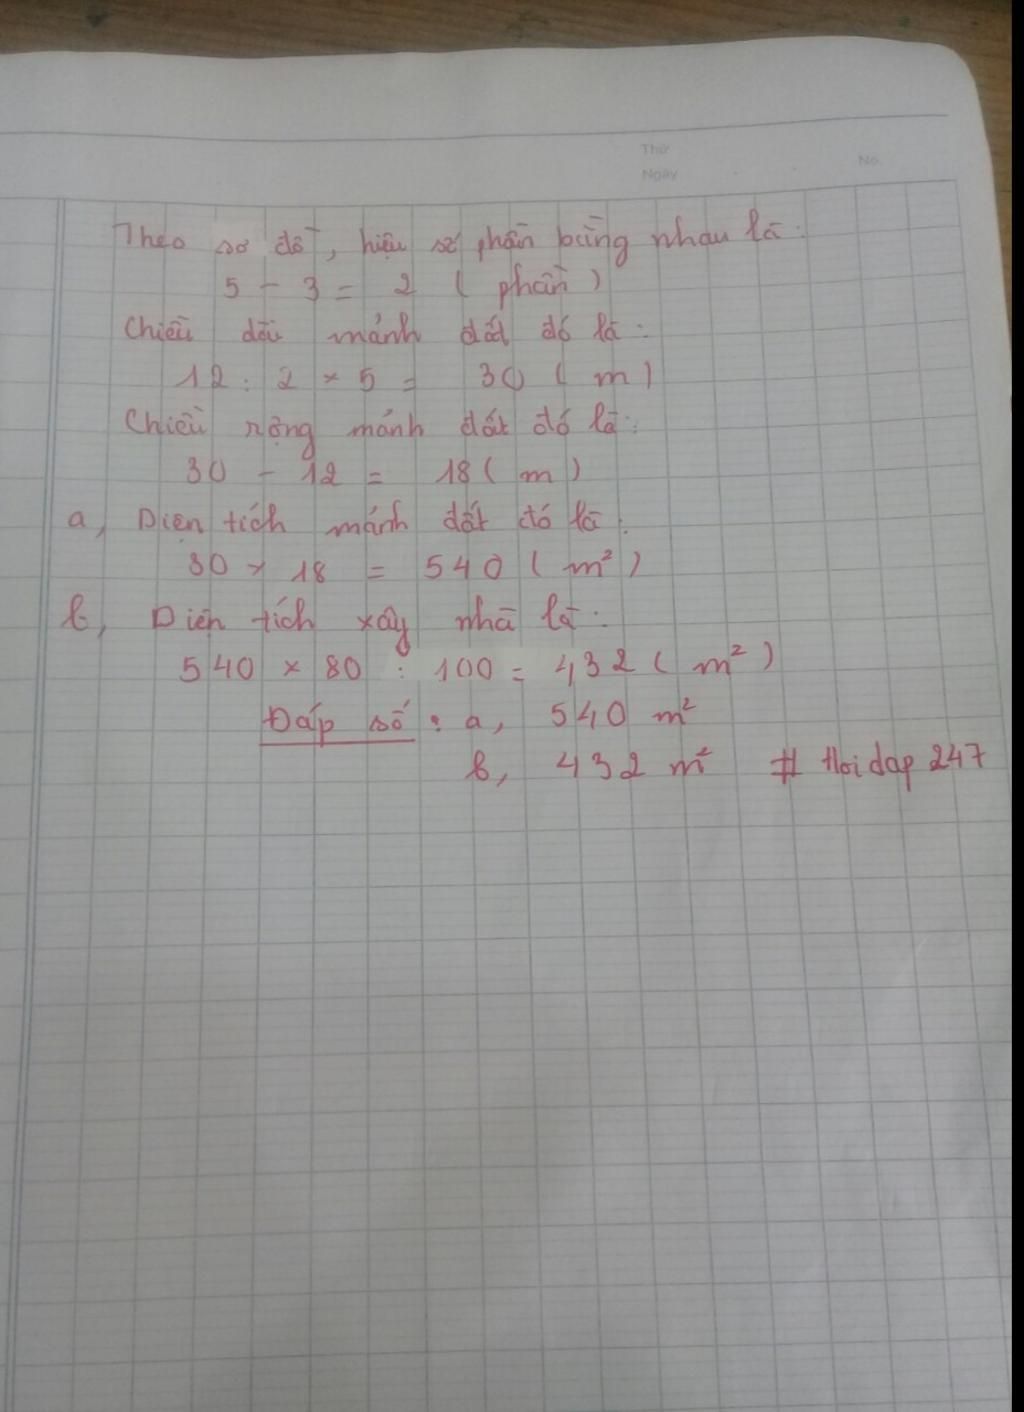 Thứ
No.
Ngày
Theo sơ đồ, hiệu số phần bằng nhau là:
5 - 3 = 2 ( phần )
Chiều dài mảnh đất đó là:
12 : 2 × 5 = 30 ( m )
Chiều rộng mảnh đất đó là:
30 - 12 = 18 ( m )
a, Diện tích mảnh đất đó là:
30 × 18 = 540 ( m² )
b, Diện tích xây nhà là:
540 × 80 : 100 = 432 ( m² )
Đáp số : a, 540 m²
b, 432 m² # Hoidap 247